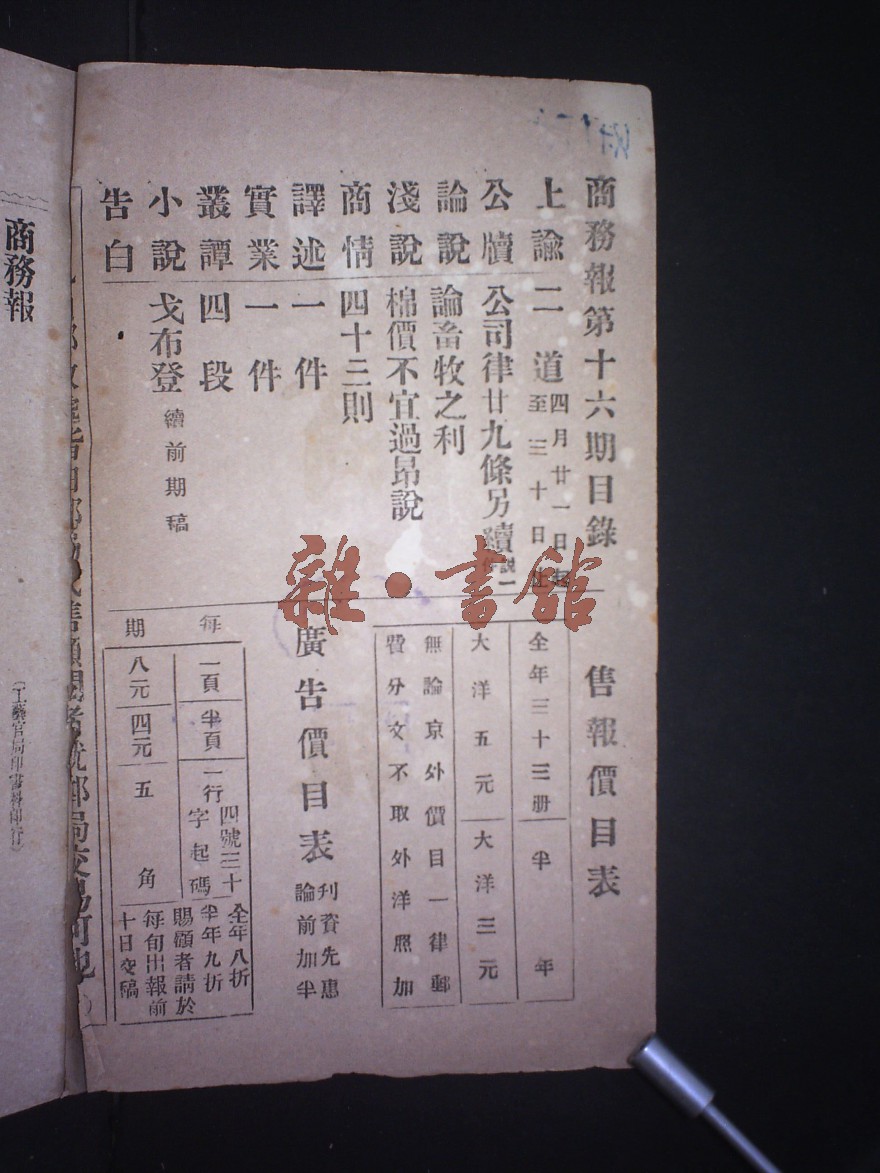 商務報第十六期目錄
上諭 二道 四月廿一日起
至三十日止
公牘 公司律廿九條另續
論說 論畜牧之利
淺說 棉價不宜過昂說
商情 四十三則
譯述 一件
實業 一件
叢譚 四段
小說 戈布登 續前期稿
告白
售報價目表
全年三十三册 半年
大洋五元 大洋三元
無論京外價目一律郵
費分文不取外洋照加
廣告價目表
刋資先惠
論前加半
每期
一頁 半頁 一行 四號三十
字起碼
八元 四元 五角
全年八折
半年九折
賜顧者請於
每旬出報前
十日交稿
雜·書館
商務報
工藝官局印書科印行